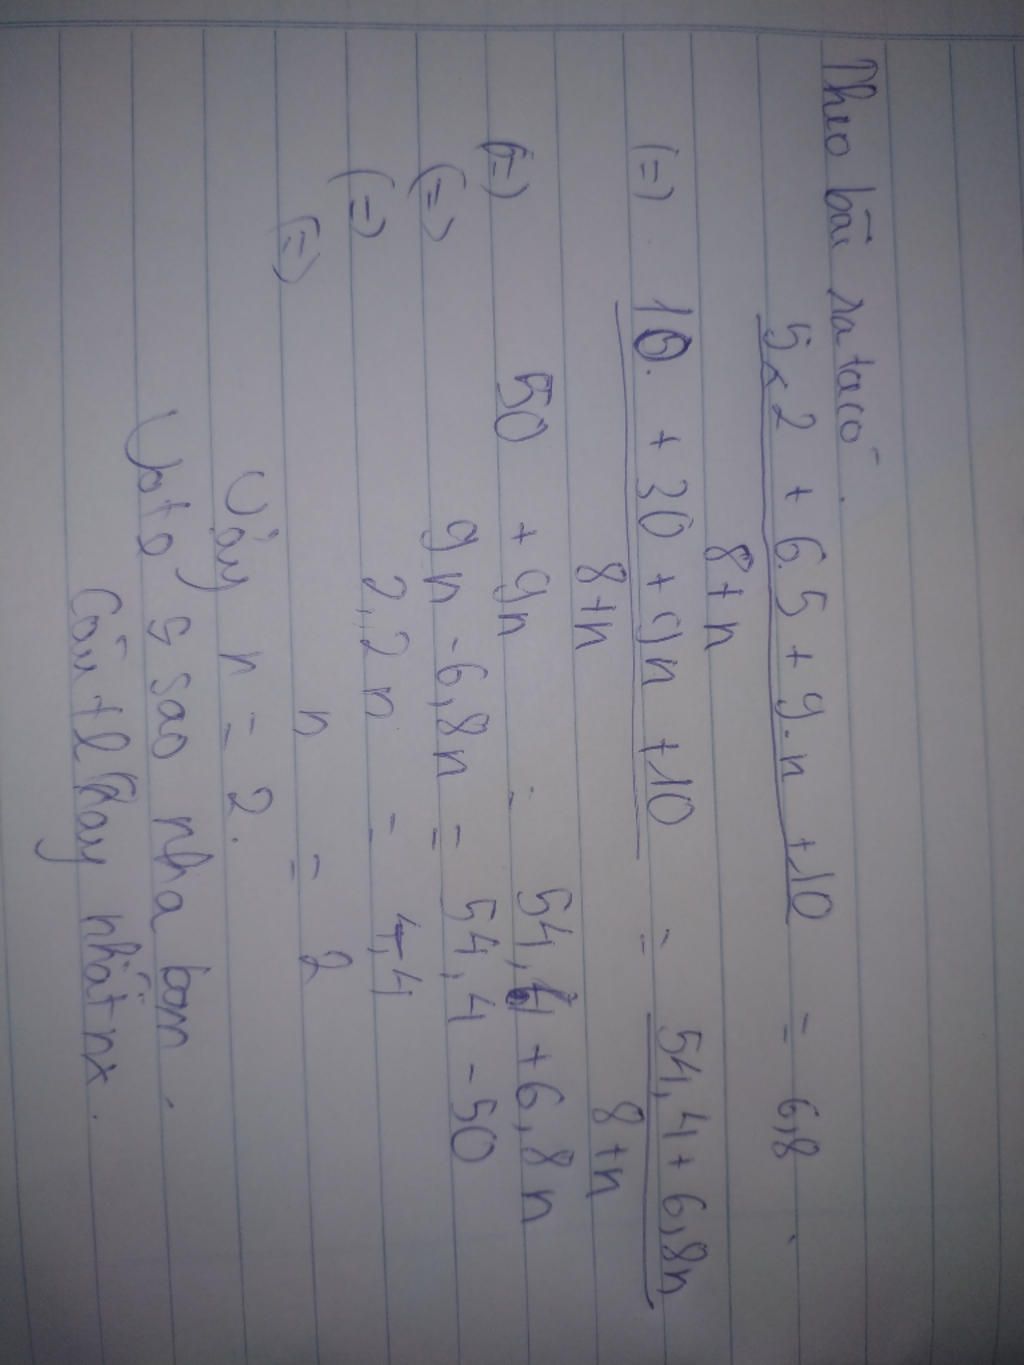 Theo bài ra ta có.
5 x 2 + 6.5 + 9.n + 10 = 6,8.
8+n
(=) 10. + 30 + 9n + 10 = 54,4 + 6,8n
8+n 8+n
(=) 50 + 9n = 54,4 + 6,8n
(=) 9n - 6,8n = 54,4 - 50
(=) 2,2n = 4,4
(=) n = 2
Vậy n = 2.
Vote 5 sao nha bạn.
Câu tl hay nhất nx.